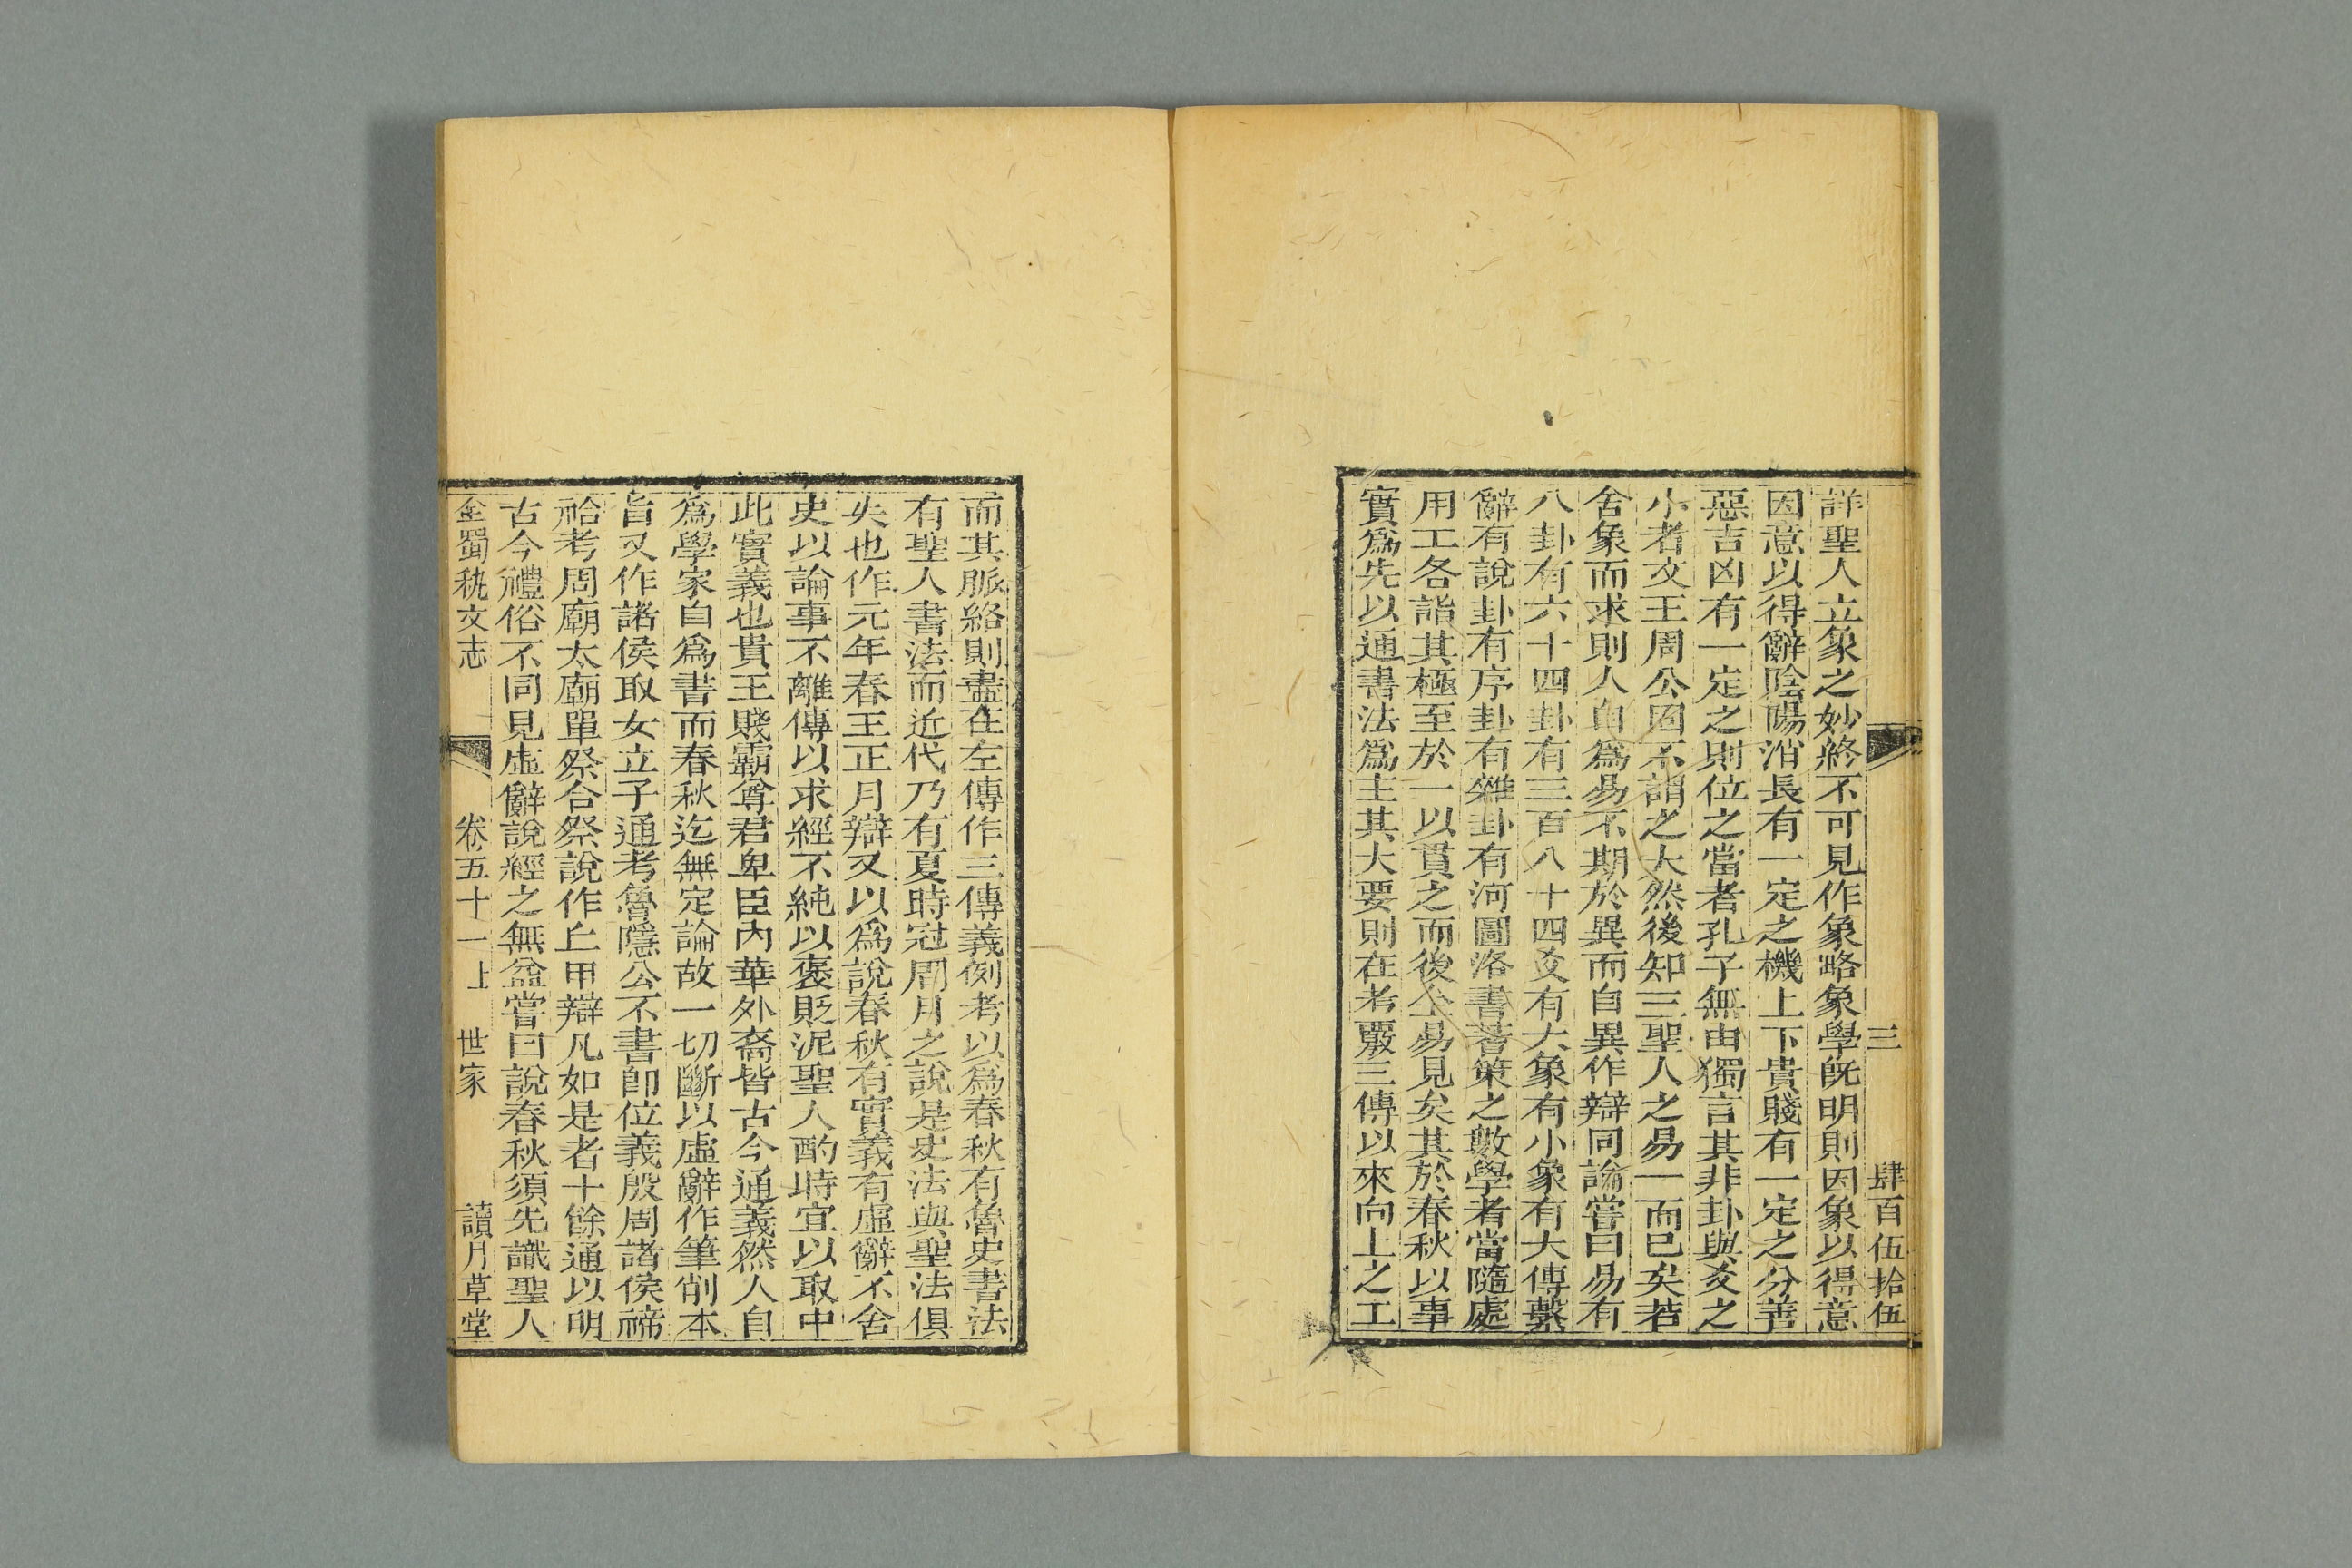 三 肆百伍拾伍
詳聖人立象之妙終不可見作象略象學旣明則因象以得意
因意以得辭陰陽消長有一定之機上下貴賤有一定之分善
惡吉凶有一定之則位之當者孔子無由獨言其非卦與爻之
小者文王周公固不謂之大然後知三聖人之易一而已矣若
舍象而求則人自爲易不期於異而自異作辯同論嘗曰易有
八卦有六十四卦有三百八十四爻有大象有小象有大傳繫
辭有說卦有序卦有雜卦有河圖洛書蓍策之數學者當隨處
用工各詣其極至於一以貫之而後全易見矣其於春秋以事
實爲先以通書法爲主其大要則在考覈三傳以來向上之工
而其脈絡則盡在左傳作三傳義例考以爲春秋有魯史書法
有聖人書法而近代乃有夏時冠周月之說是史法與聖法俱
失也作元年春王正月辯又以爲說春秋有實義有虛辭不舍
史以論事不離傳以求經不純以褒貶泥聖人酌時宜以取中
此實義也貴王賤霸尊君卑臣內華外裔皆古今通義然人自
爲學家自爲書而春秋迄無定論故一切斷以虛辭作筆削本
旨又作諸侯取女立子通考魯隱公不書卽位義殷周諸侯禘
祫考周廟太廟單祭合祭說作丘甲辯凡如是者十餘通以明
古今禮俗不同見虛辭說經之無益嘗曰說春秋須先識聖人
全蜀秇文志 卷五十一上 世家 讀月草堂